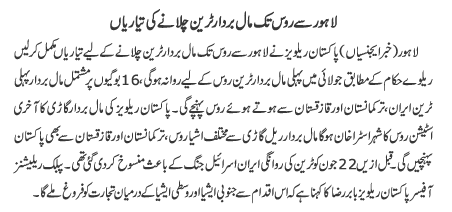 لاہور سے روس تک مال بردار ٹرین چلانے کی تیاریاں
لاہور (خبر ایجنسیاں) پاکستان ریلویز نے لاہور سے روس تک مال بردار ٹرین چلانے کے لیے تیاریاں مکمل کرلیں
ریلوے حکام کے مطابق جولائی میں پہلی مال بردار ٹرین روس کے لیے روانہ ہوگی، 16 بوگیوں پر مشتمل مال بردار پہلی
ٹرین ایران، ترکمانستان اور قازقستان سے ہوتے ہوئے روس پہنچے گی۔ پاکستان ریلویز کی مال بردار گاڑی کا آخری
اسٹیشن روس کا شہر استراخان ہوگا مال بردار ریل گاڑی سے مختلف اشیا روس، ترکمانستان اور قازقستان سے بھی پاکستان
پہنچیں گی۔ قبل ازیں 22 جون کو ٹرین کی روانگی ایران اسرائیل جنگ کے باعث منسوخ کردی گئی تھی۔ پبلک ریلیشنز
آفیسر پاکستان ریلویز بابر رضا کا کہنا ہے کہ اس اقدام سے جنوبی ایشیا اور وسطی ایشیا کے درمیان تجارت کو فروغ ملے گا۔